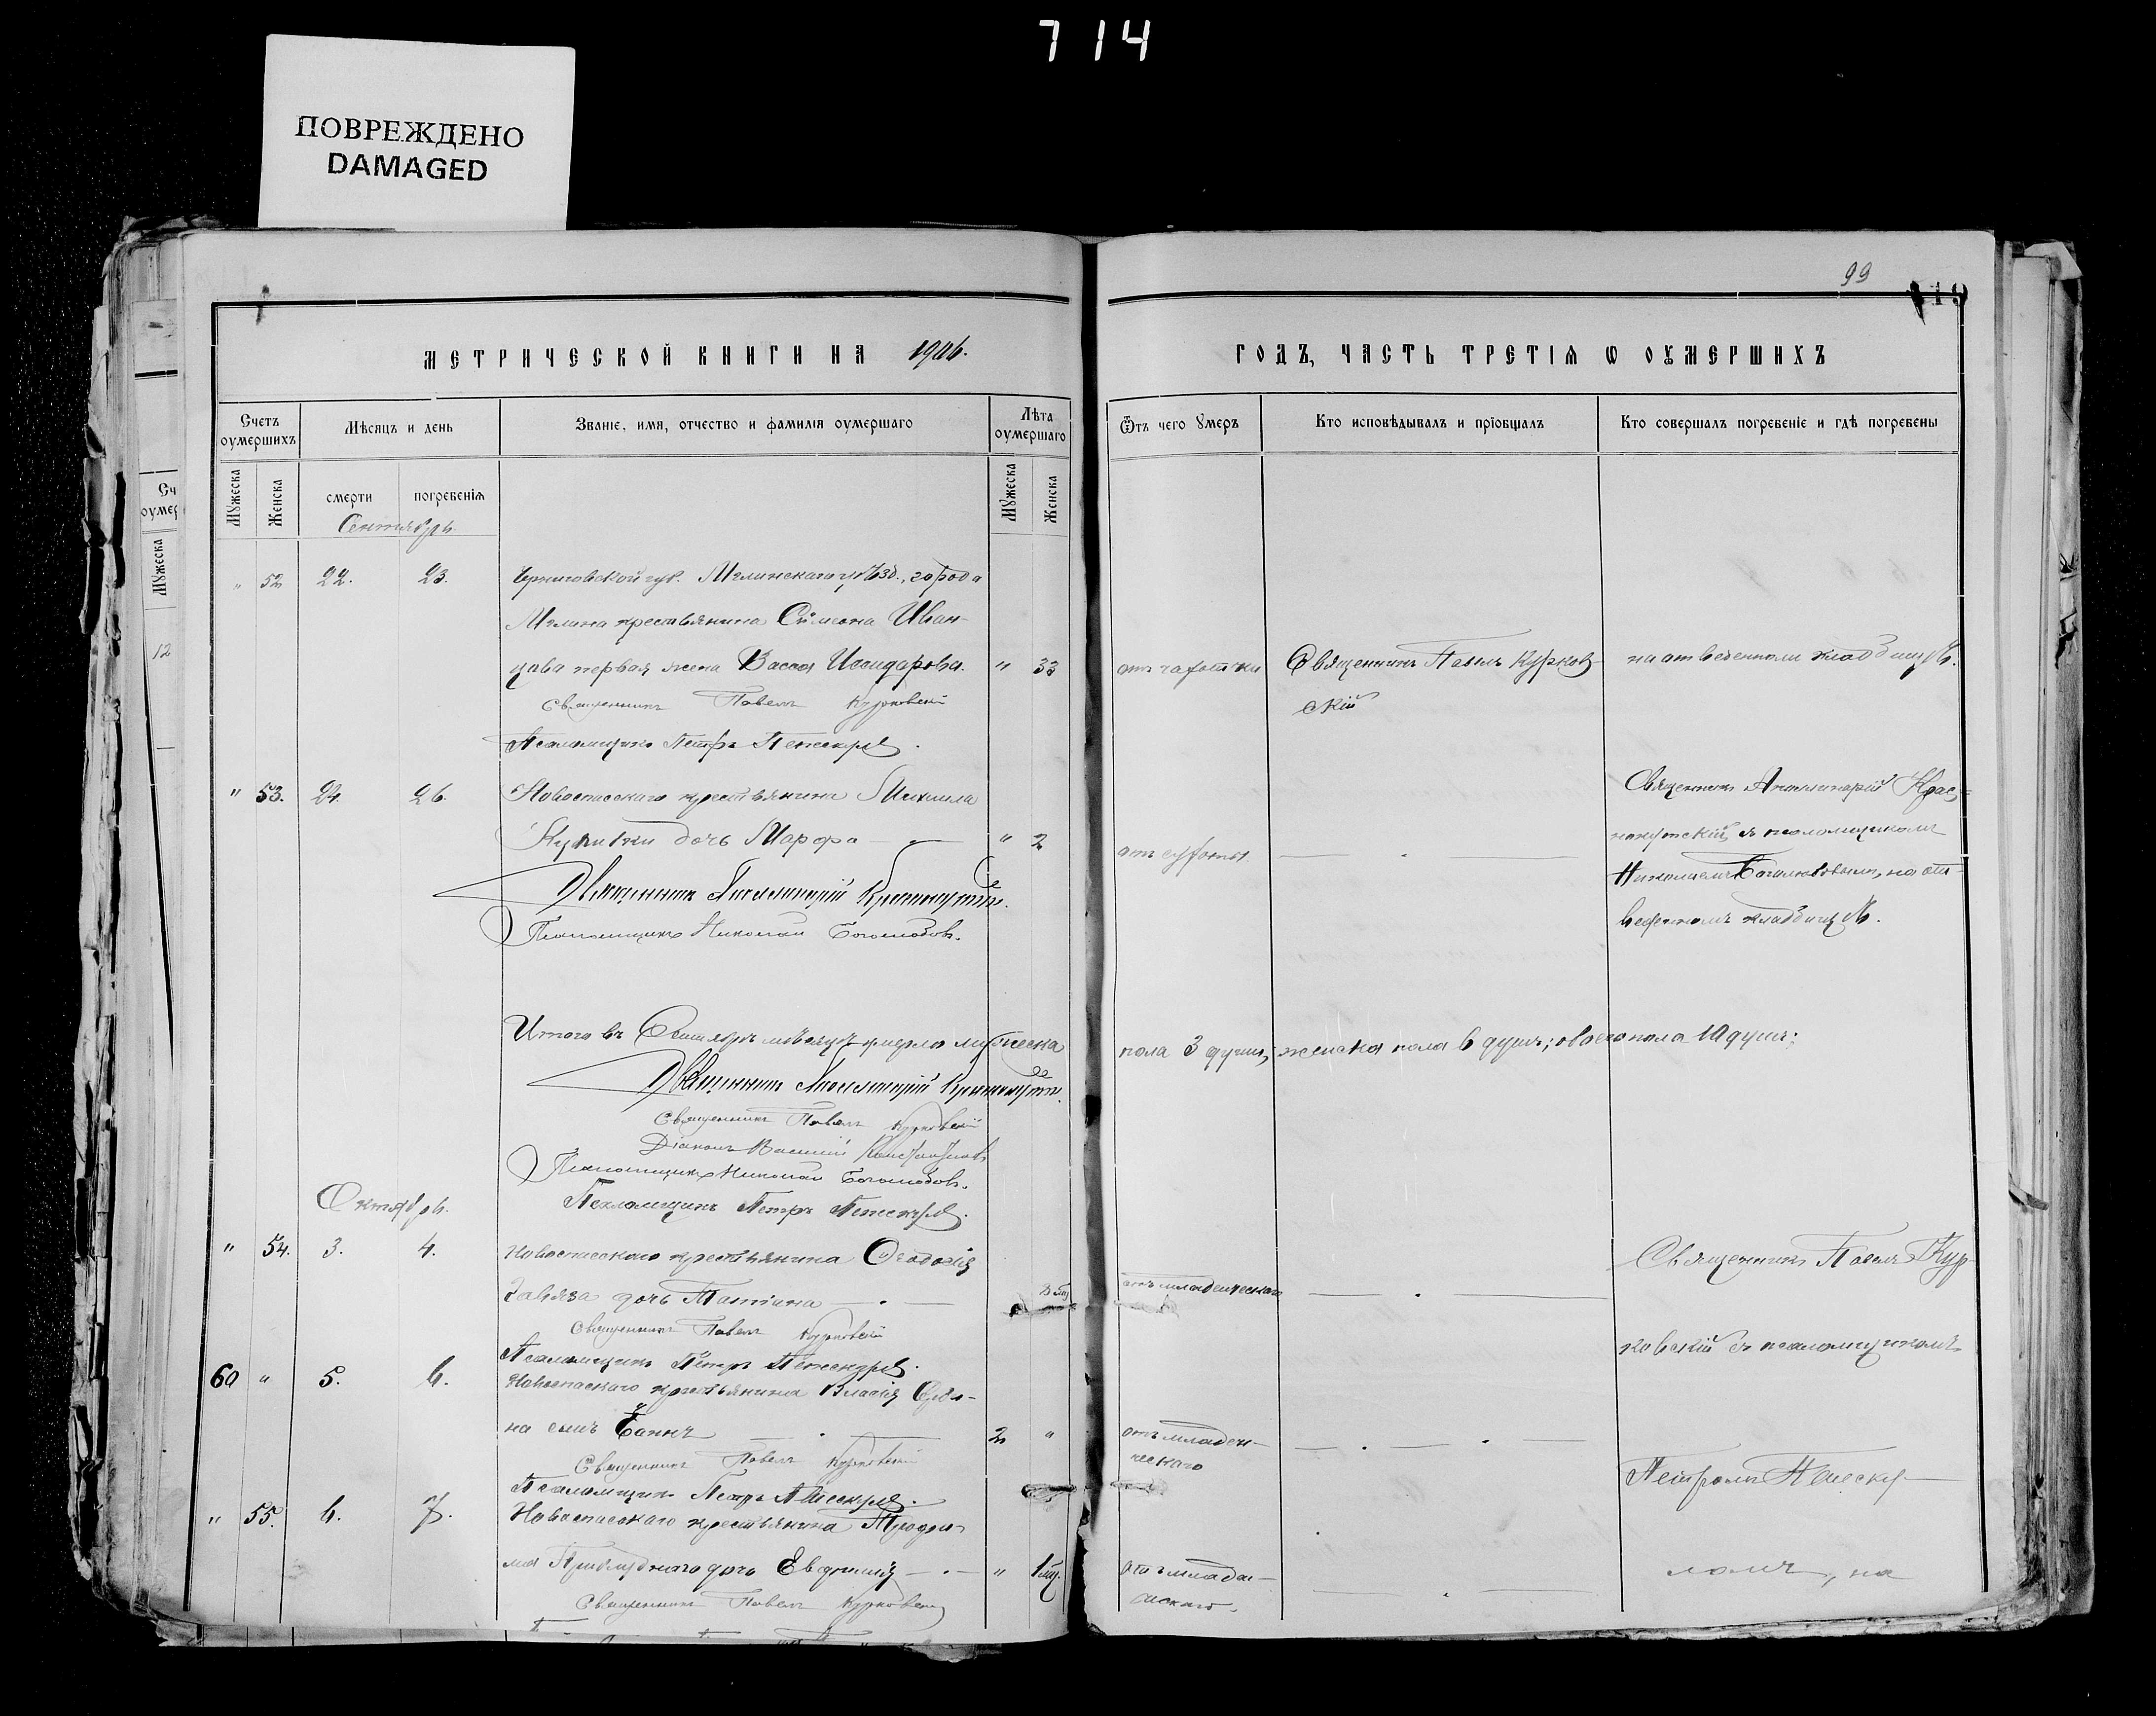 714
ПОВРЕЖДЕНО
DAMAGED
99
119
МЕТРИЧЕСКОЙ КНИГИ НА 1906.
ГОДЪ, ЧАСТЬ ТРЕТІЯ Ѡ ОУМЕРШИХЪ
Счетъ оумершихъ
Мѣсяцъ и день
Званіе, имя, отчество и фамилія оумершаго
Лѣта оумершаго
Ѿтъ чего Умеръ
Кто исповѣдывалъ и пріобщалъ
Кто совершалъ погребеніе и гдѣ погребены
Мужеска
Женска
смерти
погребенія
Мужеска
Женска
Сентябрь.
" 52 22. 23. Черниговской губ. Мглинскаго уѣзд., города
Мглина крестьянина Сѵмеона Иван-
цова первая жена Васса Исидорова. " 33 отъ чахотки Священникъ Павелъ Курков- на отведенномъ кладбищѣ.
Священникъ Павелъ Курковскій
скій
Псаломщикъ Петръ
" 53. 24. 26. Новоспасскаго крестьянина Михаила
дочь Марфа " 2
Священникъ Аполлинарій Крас-
нокутскій, съ псаломщикомъ
Николаемъ Боголюбовымъ, на от-
кладбищѣ.
Священникъ Аполлинарій Краснокутскій.
Псаломщикъ Николай Боголюбовъ.
Итого въ Сентябрѣ мѣсяцѣ умерло мужеска
пола 3 душъ, женска пола 6 душъ; обоего пола 10 душъ;
Священникъ Аполлинарій Краснокутскій.
Священникъ Павелъ Курковскій
Діаконъ Василій Константиновъ
Псаломщикъ Николай Боголюбовъ.
Псаломщикъ Петръ
Октябрь.
" 54. 3. 4. Новоспасскаго крестьянина Ѳеодосія
дочь Татіана
отъ младенческаго
Священникъ Павелъ Кур-
Священникъ Павелъ Курковскій
ковскій съ псаломщикомъ
Псаломщикъ Петръ
60 " 5. 6. Новоспасскаго крестьянина Власія
на сынъ 2 "
отъ младен-
ческаго
Священникъ Павелъ Курковскій
Петромъ
Псаломщикъ Петръ
" 55. 6. 7. Новоспасскаго крестьянина
дочь Евфимія " 1 мц.
отъ младен-
ческаго.
ломъ, на
Священникъ Павелъ Курковскій
Сч
оумер
Мужеска
12